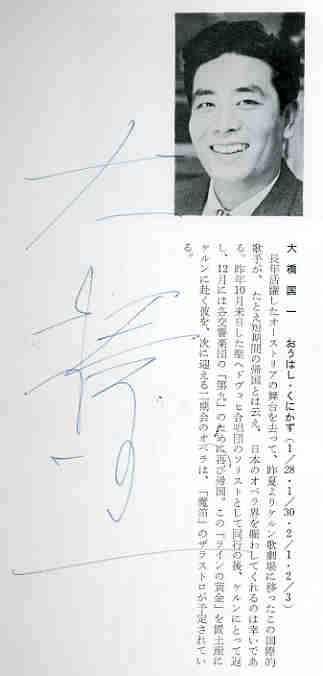 大橋国一　おうはし・くにかず（1／28・1／30・2／1・2／3）
長年活躍したオーストリアの舞台を去って、昨夏よりケルン歌劇場に移ったこの国際的
歌手が、たとえ短期間の帰国とは云え、日本のオペラ界を賑わしてくれるのは幸いであ
る。昨年10月来日した聖ヘドヴッヒ合唱団のソリストとして同行の後、ケルンにとって返
し、12月には各交響楽団の「第九」のために再び帰国。この「ラインの黄金」を置土産に
ケルンに赴く彼を、次に迎える二期会のオペラは、「魔笛」のザラストロが予定されてい
る。
大橋国一